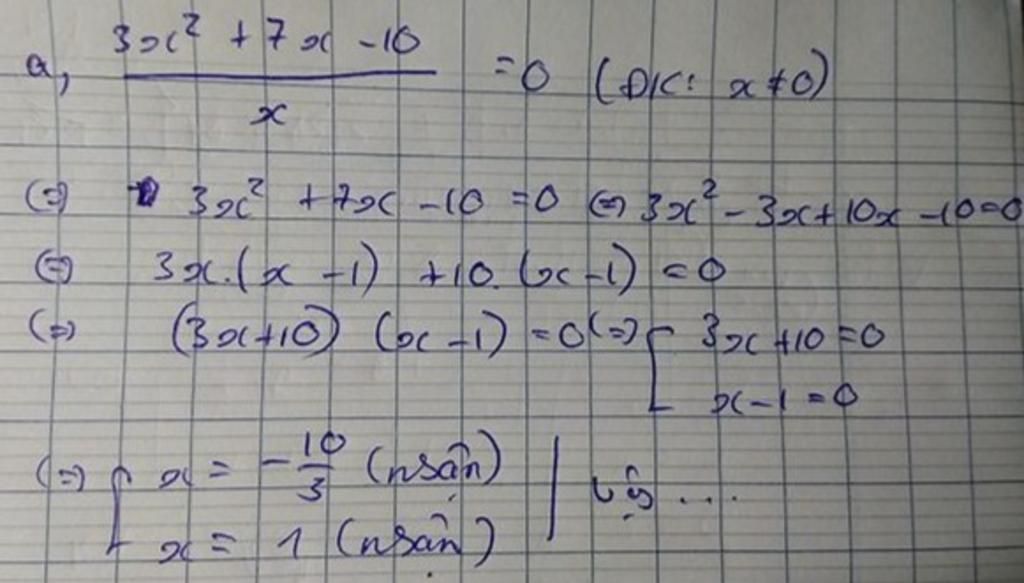 a, \frac{3x² + 7x - 10}{x} = 0 (ĐK: x ≠ 0)
(=) 3x² + 7x - 10 = 0 (=) 3x² - 3x + 10x - 10 = 0
(=) 3x.(x - 1) + 10.(x - 1) = 0
(=) (3x + 10) (x - 1) = 0 (=) [ 3x + 10 = 0
x - 1 = 0
(=) [ x = -\frac{10}{3} (nhận) | Vậy ...
x = 1 (nhận)